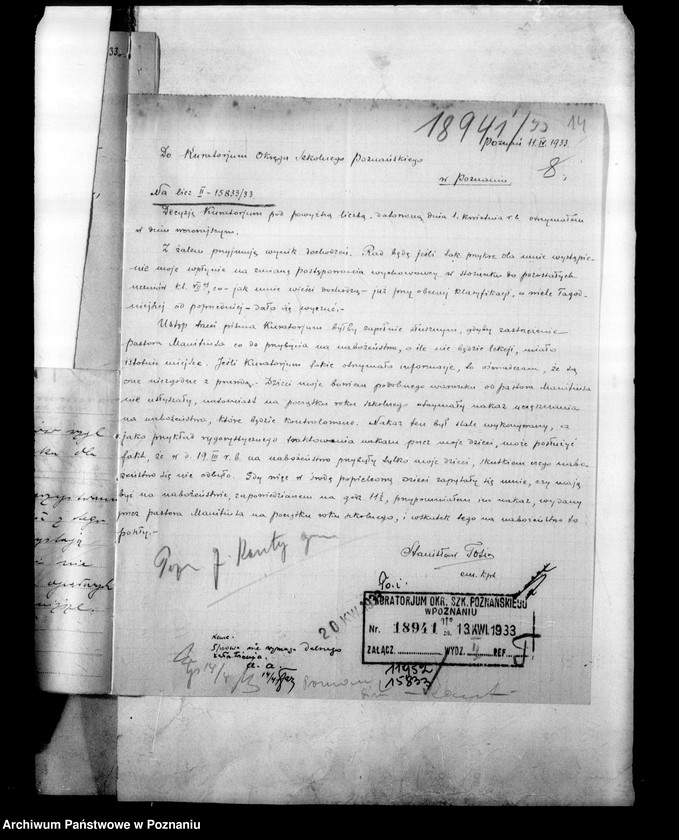 33.
18941/33
14
Poznań 11.IV.1933.
8
Do Kuratorjum Okręgu Szkolnego Poznańskiego
w Poznaniu
Na licz II - 15833/33
Decyzję Kuratorjum pod powyższą liczbą, datowaną dnia 1. kwietnia r.b. otrzymałem
w dniu wczorajszym.
Z żalem przyjmuję wynik dochodzeń. Rad będę jeśli tak przykre dla mnie wystąpie-
nie moje wpłynie na zmianę postępowania wychowawcy w stosunku do pozostałych
uczniów kl. co - jak mnie wieści dochodzą - już przy obecnej klasyfikacji, o wiele łagod-
niejszej od poprzedniej - dało się wyczuć.-
Ustęp trzeci pisma Kuratorjum byłby zupełnie słusznym, gdyby zastrzeżenie
pastora Manitiusa co do przybycia na nabożeństwo, o ile nie będzie lekcji, miało
istotnie miejsce. Jeśli Kuratorjum takie otrzymało informacje, to oświadczam, że są
one niezgodne z prawdą. Dzieci moje bowiem podobnego warunku od pastora Manitiusa
nie usłyszały, natomiast na początku roku szkolnego otrzymały nakaz uczęszczania
na nabożeństwa, które będzie kontrolowane. Nakaz ten był stale wykonywany, a
jako przykład rygorystycznego traktowania nakazu przez moje dzieci, może posłużyć
fakt, że w d. 19.III r.b. na nabożeństwo przybyły tylko moje dzieci, skutkiem czego nabo-
żeństwo się nie odbyło. Gdy więc w środę popielcową dzieci zapytały się mnie, czy mają
być na nabożeństwie, zapowiedzianem na godz. przypomniałem im nakaz, wydany
przez pastora Manitiusa na początku roku szkolnego, i wskutek tego na nabożeństwo to
poszły.-
Stanisław
em. kpt.
20 KWI. 1933
KURATORJUM OKR. SZK. POZNAŃSKIEGO
W POZNANIU
Nr. 18941 13.KWI.1933
ZAŁĄCZ. WYDZ. REF.
Sprawa nie wymaga dalszego
załatwienia.
a. a.
14/4
11952
15833
Archiwum Państwowe w Poznaniu